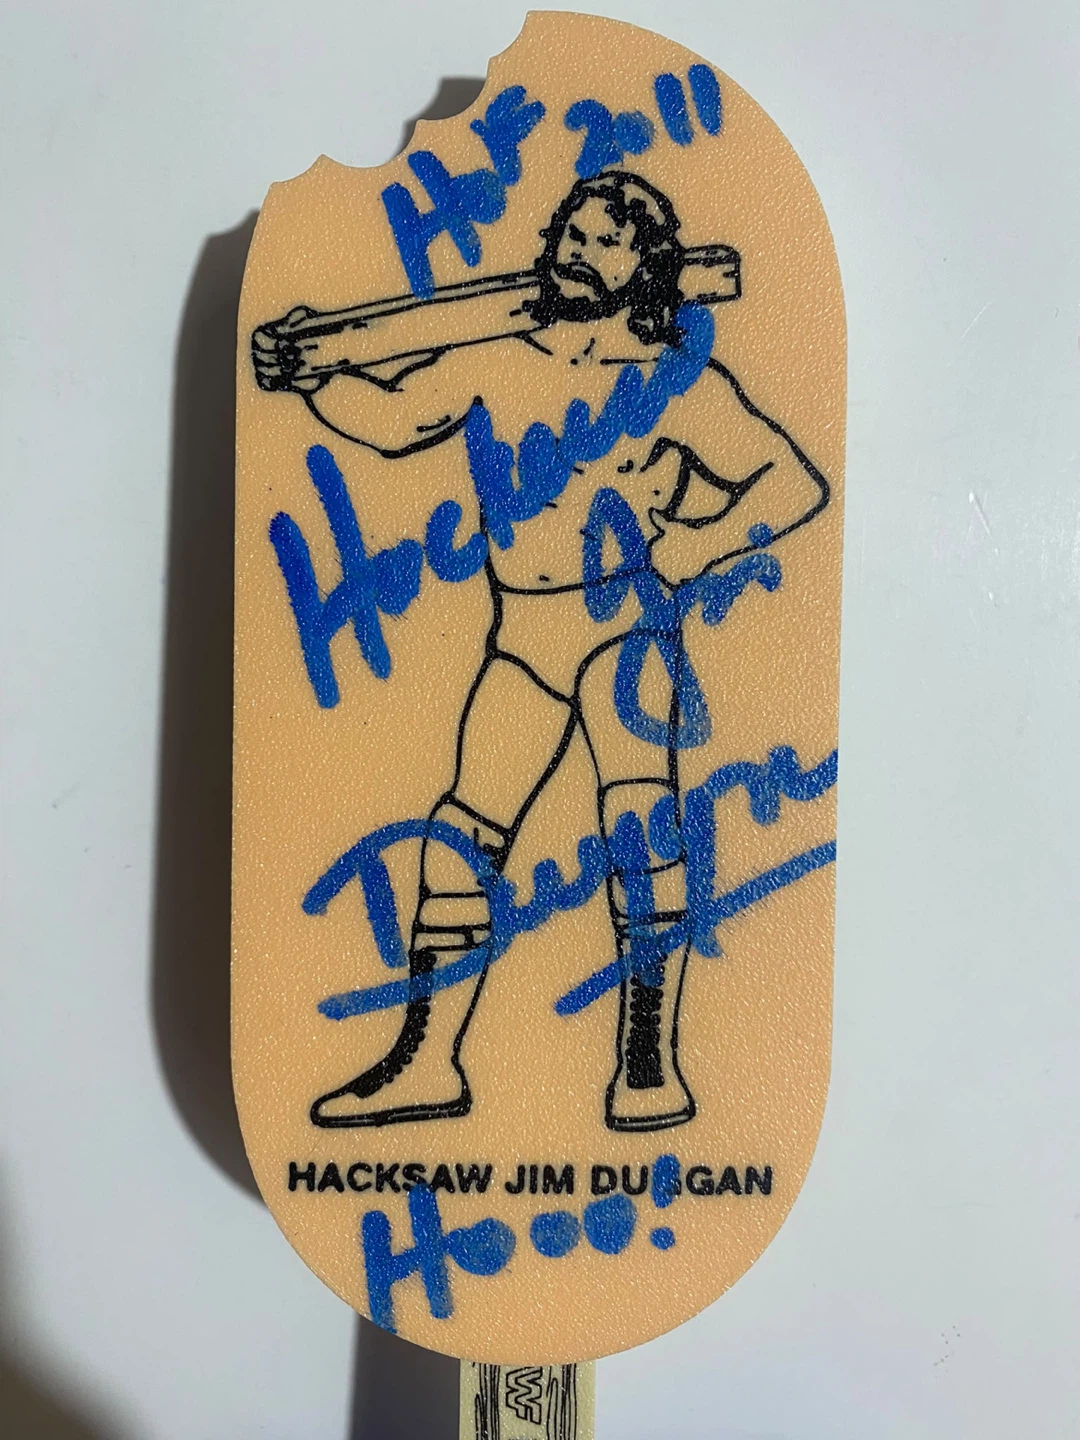 HOF 2011
Hacksaw
Jim
Duggan
HACKSAW JIM DUGGAN
Hooo!
WF